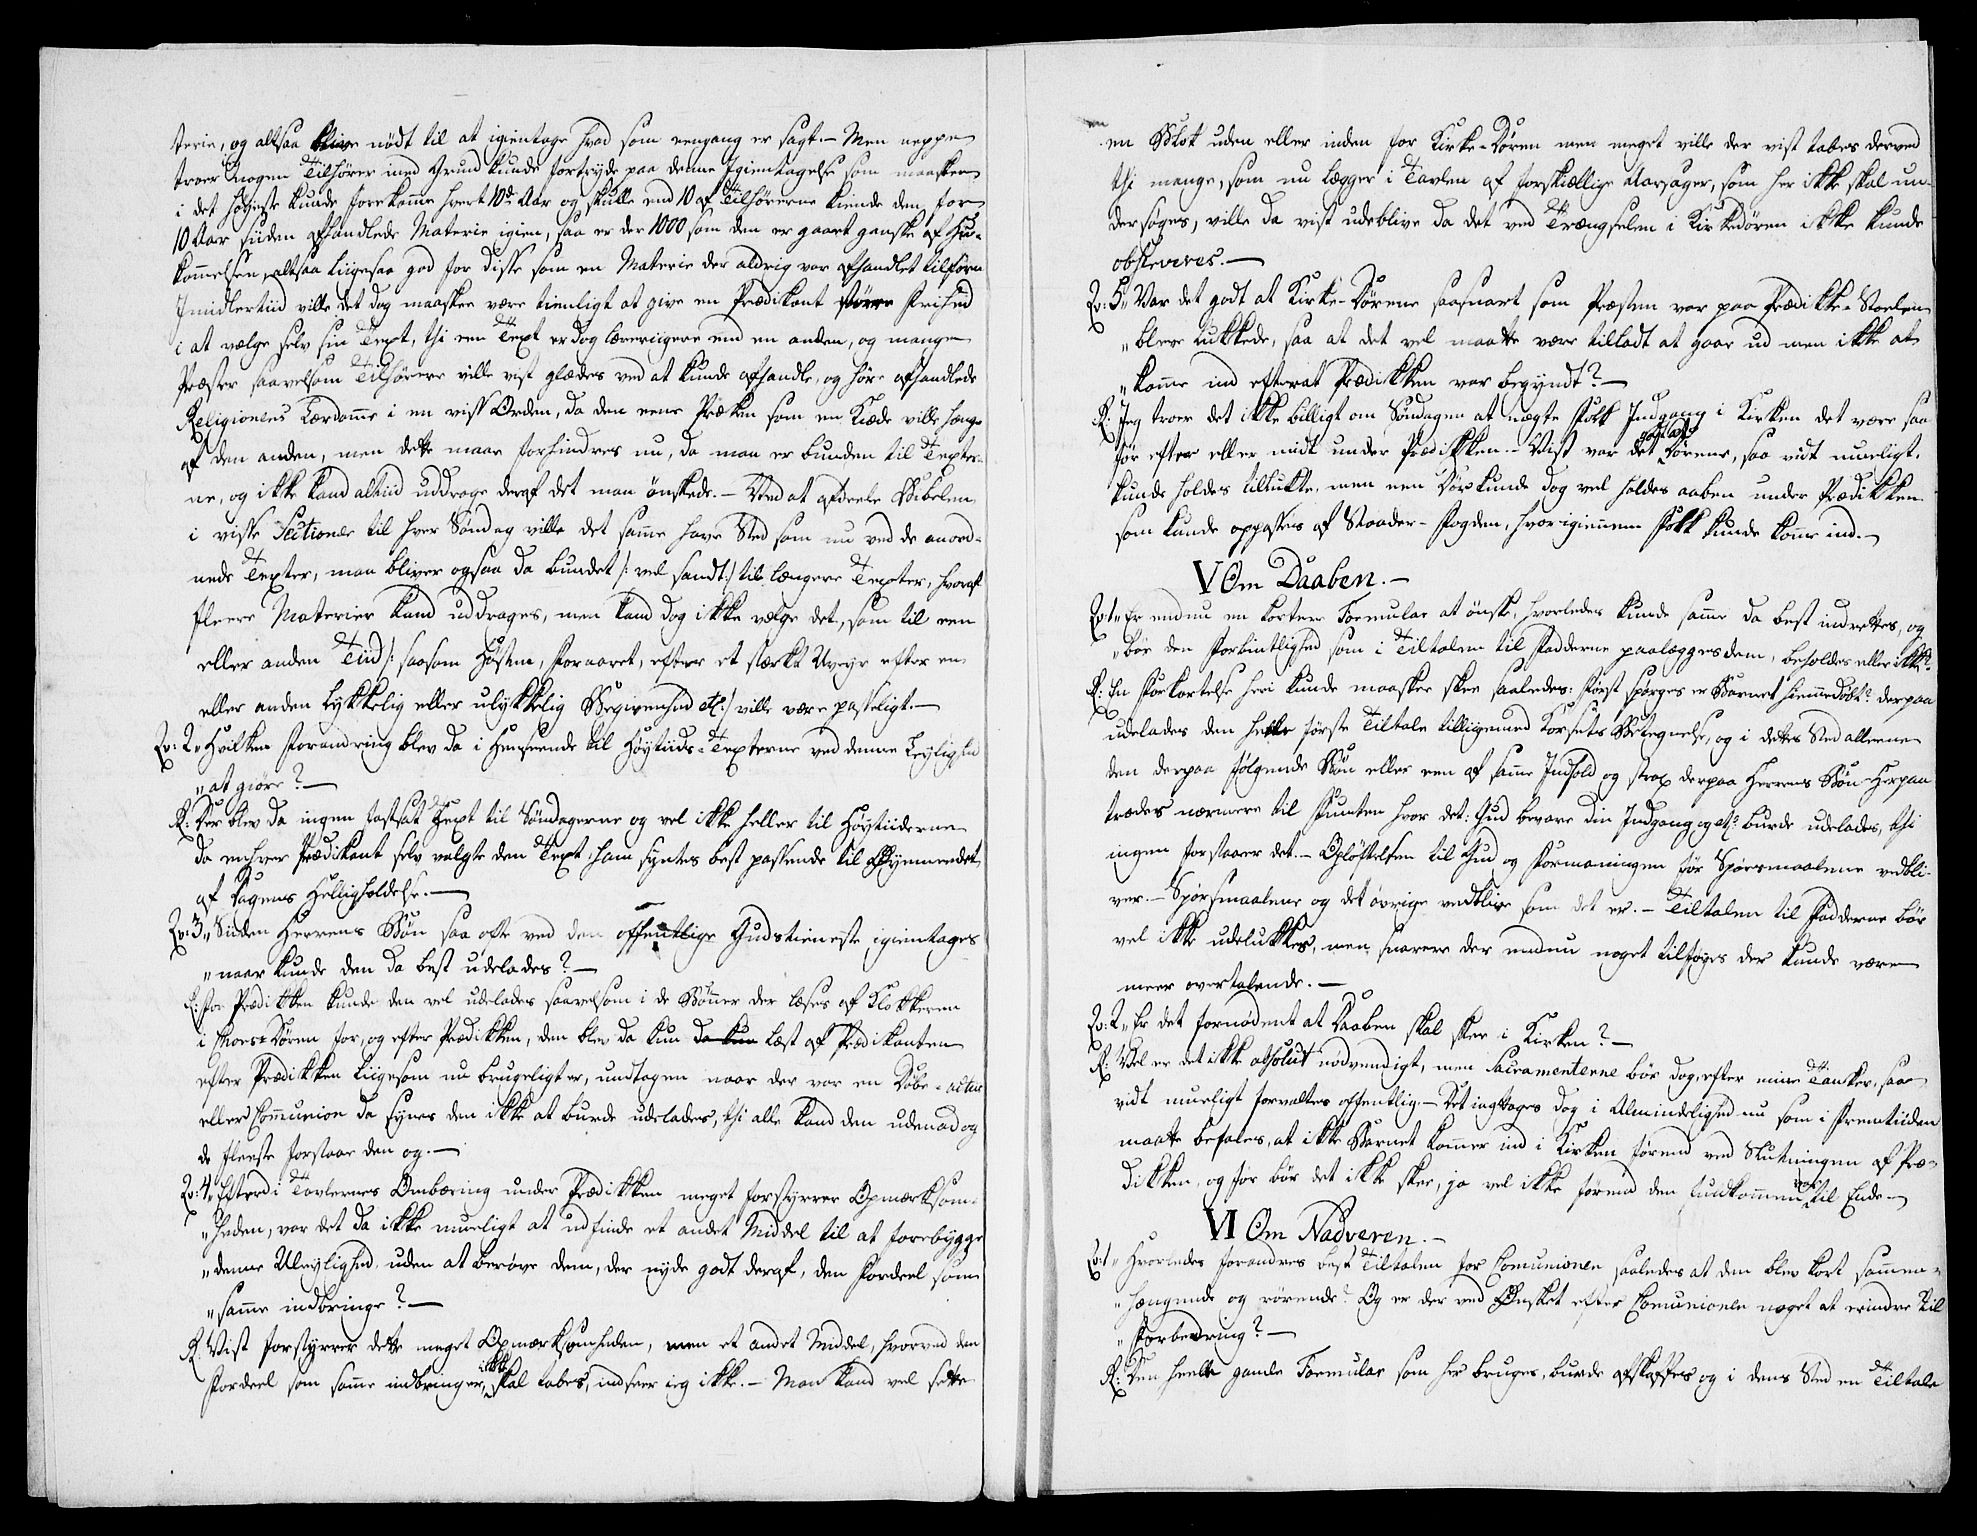 terie, og altsaa blive nödt til at igientage hvad som eengang er sagt. – Men neppe
troer nogen Tilhörer med Grund kunde fortryde paa denne Igientagelse som maaskee
i det höyeste kunde forekomme hvert 10de Aar og skulle end 10 af Tilhörerne kiende den for
10 Aar siiden afhandlede Materie igien, saa er der 1000 som den er gaaet ganske af Hu-
kommelsen, altsaa liigesaa god for disse som en Materie der aldrig var afhandlet tilforn
Imidlertiid ville det dog maaskee være tienligt at give en Prædikant större Friehed
i at vælge selv sin Text, thi een Text er dog lærerigere end en anden, og mange
Præster saavelsom Tilhörere ville vist glædes ved at kunde afhandle, og höre afhandlede
Religionens Lærdomme i en viss Orden, da den eene Præken som en Kiæde ville hænge
af den anden, men dette maae forhindres nu, da man er bunden til Texter-
ne, og ikke kand altiid uddrage deraf det man önskede. – Ved at afdeele Bibelen
i visse Sectioner til hver Söndag ville det samme have Sted som nu ved de anord-
nede Texter, man bliver ogsaa da bundet /: vel sandt :/ til længere Texter, hvoraf
fleere Materier kand uddrages, men kand dog ikke vælge det, som til een
eller anden Tiid /: saasom Hösten, Foraaret, efter et stærkt Uveyr efter en
eller anden lykkelig eller ulykkelig Begivenhed etc :/ ville være passeligt. –
Qv: 2 „ Hvilken Forandring blev da i Henseende til Höytiids-Texterne ved denne Leylighed
„ at giöre? –
R: Der blev da ingen fastsat Text til Söndagerne og vel ikke heller til Höytiiderne
da enhver Prædikant selv valgte den Text ham syntes best passende til Øyemeedet
af Dagens Helligholdelse. –
Qv: 3 „ Siiden Herrens Bön saa ofte ved den offentlige Gudstieneste igientages
„ naar kunde den da best udelades? –
R: For Prædikken kunde den vel udelades saavelsom i de Bönner der læses af Klokkeren
i Choers Dören for, og efter Prædikken, den blev da kun da kun læst af Prædikanten
efter Prædikken liigesom nu brugeligt er, undtagen naar der var en Döbe-actus
eller Communion da synes den ikke at burde udelades, thi alle kand den udenad og
de fleeste forstaar den og. –
Qv: 4 „ Efterdi Tavlernes Ombæring under Prædikken meget forstyrrer Opmærksom-
„ heden, var det da ikke mueligt at udfinde et andet Middel til at forebygge
„ denne Uleylighed, uden at beröve dem, der nyde godt deraf, den Fordeel som
„ samme indbringe? –
R: Vist forstyrrer dette meget Opmærksomheden, men et andet Middel, hvorved den
Fordeel som samme indbringer, ikke skal tabes, indseer ieg ikke. – Man kand vel sette
en Blok uden eller inden for Kirke-Dören men meget ville der vist tabes derved
thi mange, som nu lægger i Tavlen af forskiællige Aarsager, som her ikke skal un-
dersöges, ville da vist udeblive da det ved Trængselen i Kirkedören ikke kunde
observeres. –
Qv: 5 „ Var det godt at Kirke-Dörene saasnart som Præsten var paa Prædikke-Stoelen
„ bleve lukkede, saa at det vel maatte være tilladt at gaae ud men ikke at
„ komme ind efterat Prædikken var begyndt? –
R: Jeg troer det ikke billigt om Söndagen at nægte Folk Indgang i Kirken det være saa
för efter eller midt under Prædikken. – Vist var det godt at Dörene, saa vidt mueligt,
kunde holdes tillukte, men een Dör kunde dog vel holdes aaben under Prædikken
som kunde oppasses af Stoader-Fogden, hvorigiennem Folk kunde komme ind. –
V Om Daaben. –
Qv: 1 „ Er endnu en kortere Formular at önske, hvorledes kunde samme da best indrettes, og
„ bör den Forbintlighed som i Tiltalen til Fadderne paalægges dem, beholdes eller ikke?
R: En Forkortelse heri kunde maaskee skee saaledes: först spörges er Barnet hiemmedöbt? derpaa
udelades den heele förste Tiltale tilligemed Korsets Betegnelse, og i dettes Sted alleene
den derpaa fölgende Bön eller een af samme Indhold og strax derpaa Herrens Bön – Herpaa
trædes nærmere til Funten hvor det: Gud bevare din Indgang og etc: burde udelades, thi
ingen forstaaer det. – Oplöftelsen til Gud og Formaningen för Spörsmaalene vedbli-
ver. – Spörsmaalene og det övrige vedblive som det er. – Tiltalen til Fadderne bör
vel ikke udelukkes, men snarere der endnu noget tilföyes der kunde være
meer overtalende. –
Qv: 2 „ Er det fornödent at Daaben skal skee i Kirken? –
R: Vel er det ikke absolut nödvendigt, men Sacramenterne bör dog, efter mine Tanker, saa
vidt mueligt forvaltes offentlig. – Det iagttages dog i Almindelighed nu som i Fremtiiden
maatte befales, at ikke Barnet kommer ind i Kirken förend ved Slutningen af Præ-
dikken, og för bör det ikke skee, ja vel ikke förend den fuldkommen var til Ende –
VI Om Nadveren. –
Qv: 1 „ Hvorledes forandres best Tiltalen for Comunionen saaledes at den blev kort sammen-
„ hængende og rörende? Og er der ved Önsket efter Comunionen noget at erindre til
„ Forbedring? –
R: Den heele gamle Formular som her bruges, burde afskaffes og i dens Sted en Tiltale